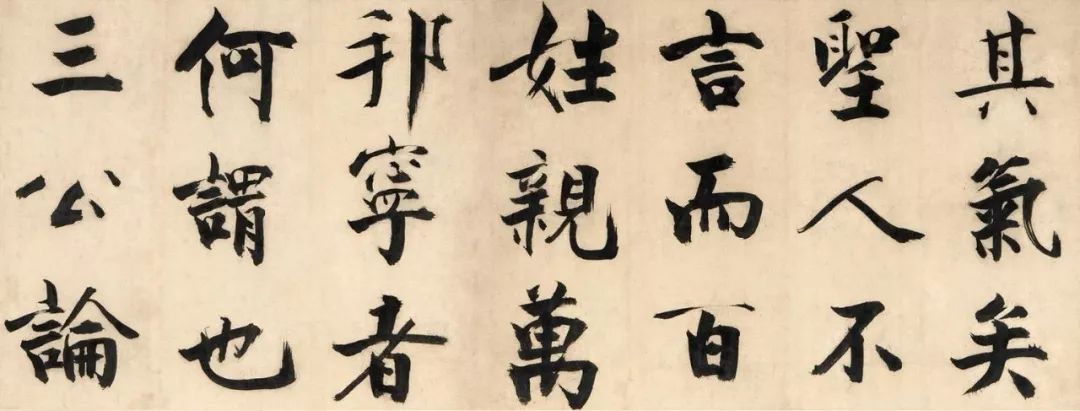 其氣矣
聖人不
言而百
姓親萬
邦寧者
何謂也
三公論